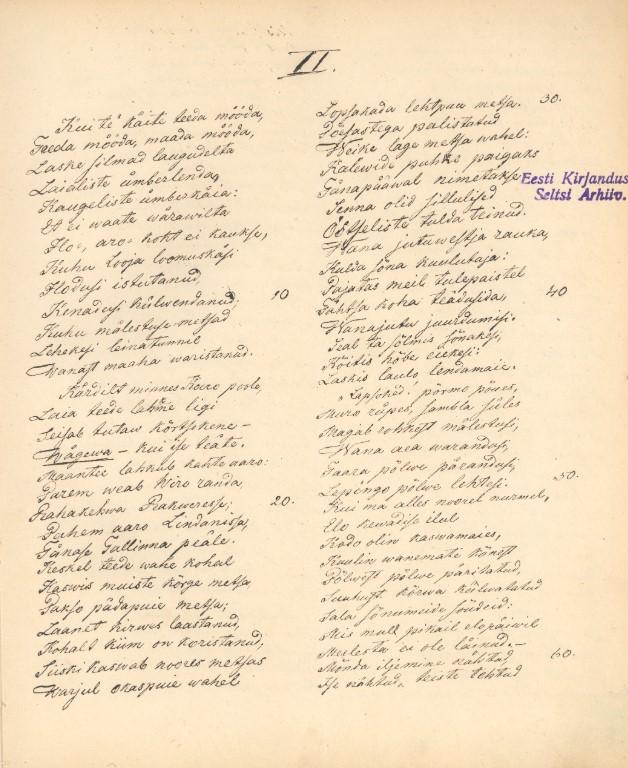 II.
Kui te käite teeda mööda,
Teeda mööda, maada mööda,
Laske silmad laugudelta
Laialiste ümberlenda,
Kaugeliste ümberkäia:
Et ei waate warawilta
Ilo-, aro- koht ei kaukse,
Kuhu Looja loomuskäsi
Ilodusi istutanud,
Kenadusi külwendanud; 10
Kuhu mälestuse metsad
Lehekesi leinatunnil
Wanast maaha waristanud.
Kärdilt minnes Karo poole,
Laia teede lahme ligi
Seisab tutaw kõrtsikene –
Wägewa – kui ise teäte.
Maantee lahkub kahte aaro:
Parem weab Wiro randa,
Rahakekwa Rakweresse; 20.
Pahem aaro Lindanissa,
Tänase Tallinna peäle.
Keskel teede wahe kohal
Kaswis muiste kõrge metsa
Pakso pädapuie metsa;
Laanet kirwes laastanud,
Kohalt küün on koristanud,
Siiski kaswab noores metsas
Harjul okaspuie wahel
Lopsakada lehtpuu metsa. 30.
Põõsastega palistatud
Weike lage metsa wahel:
Kalewide puhke paigaks
Tänapääwal nimetakse
Senna olid sillulised
Öötseliste tulda teinud.
Wana jutuwestja rauka,
Kulda sõna kuulutaja:
Pajatas meil tulepaistel
Tähtsa koha teädusida, 40
Wanajutu juurdumisi.
Seal ta sõlmis sõnakesi,
Köitis hõbe ciekesi:
Laskis laulo lendamaie.
„Lapsoked! põrmo põues,
Muro rüpes, sambla süles
Magab rohkest mälestusi,
Wana aea warandusi,
Taara põlwe pärandusi,
Lepingo põlwe lehtesi. 50.
Kui ma alles noorel nurmel,
Elo kewadise ilul
Kodo olin kaswamaies,
Kuulin wanemate känest
Põlwest põlwe päritatud,
Suuhust kõrwa külwatatud
Salasõnumeide sõudeid:
Mis mull pikail elopäiwil
Meelesta ei ole läinud. –
Mõnda iljemine nähtud, 60.
Ise nähtud, teiste tehtud
Eesti Kirjandus
Seltsi Arhiiv.